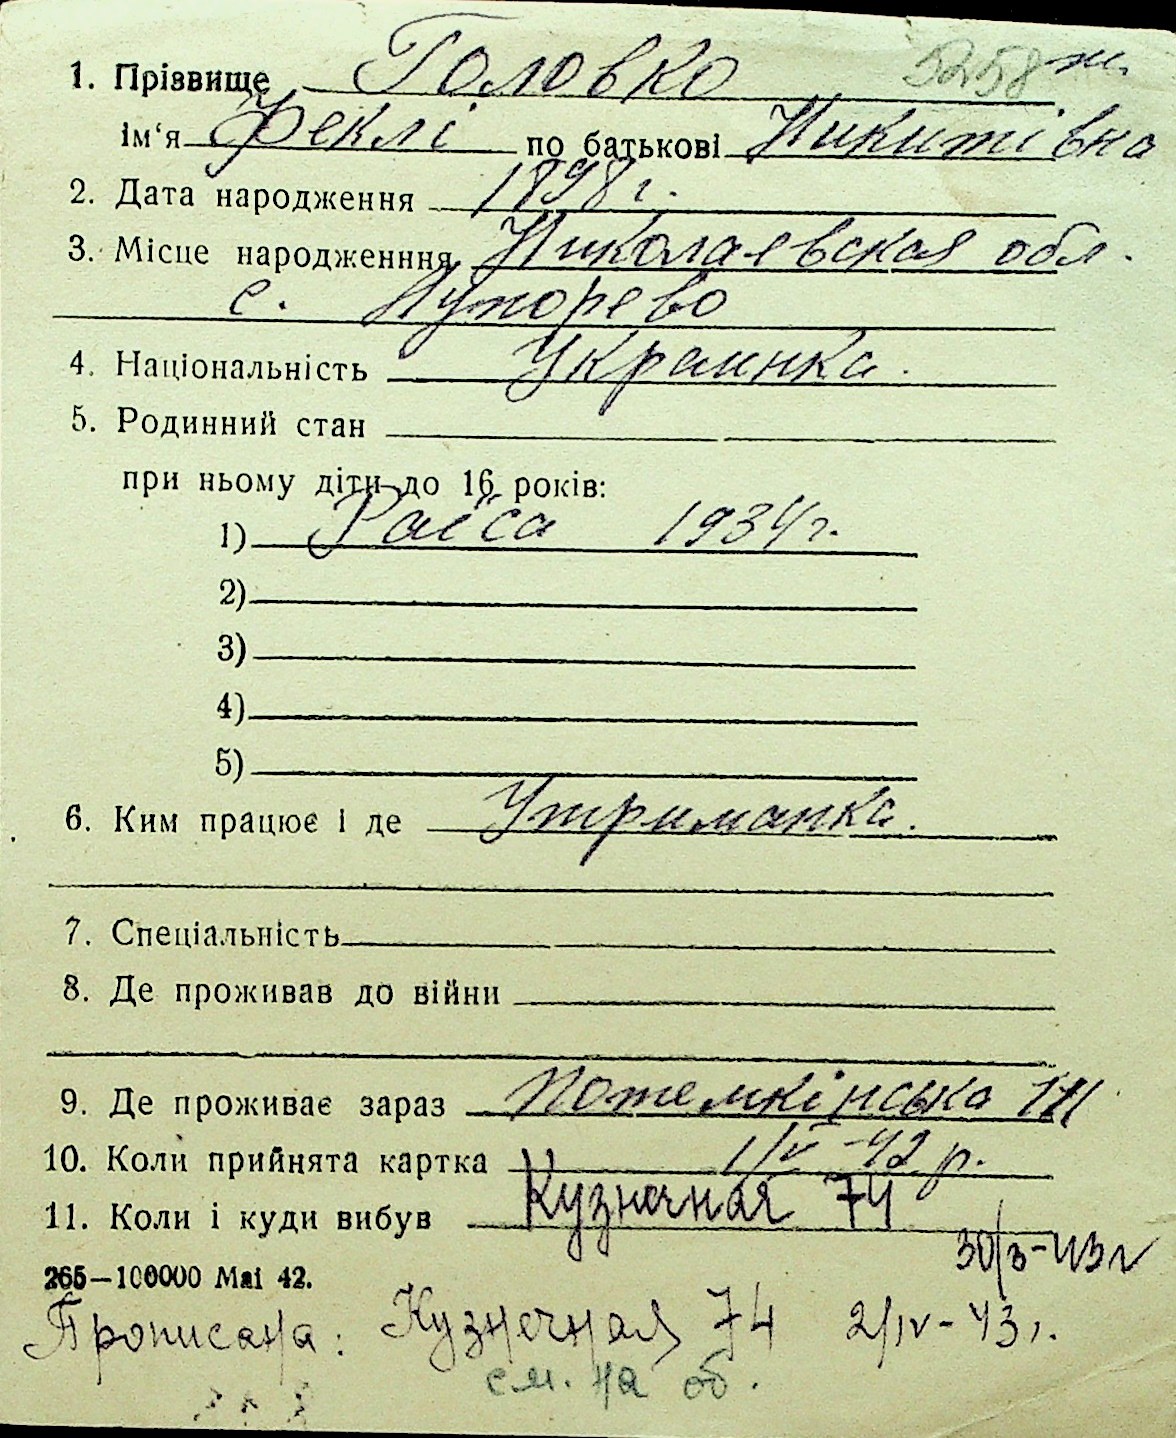 5258 ж.
1. Прізвище Головко
ім‘я Феклі по батькові Никитівна
2. Дата народження 1898 г.
3. Місце народженння Николаевская обл.
с.
4. Національність Украинка.
5. Родинний стан
при ньому діти до 16 років:
1) Раїса 1934 г.
2)
3)
4)
5)
6. Ким працює і де Утриманка.
7. Спеціальність
8. Де проживав до війни
9. Де проживає зараз Потемкінська
10. Коли прийнята картка 1/IV-42 р.
11. Коли і куди вибув Кузнечная 74
30/3-43 г
265—100000 Mai 42.
Прописана: Кузнечная 74 2/IV-43 г.
см. на об.